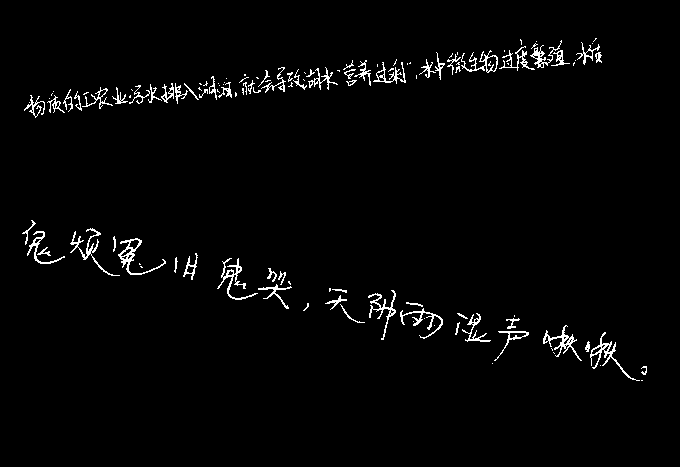 物质的工农业污水排入湖泊,就会导致湖水"营养过剩",水中微生物过度繁殖,水质
鬼烦冤旧鬼哭,天阴雨湿声啾啾。